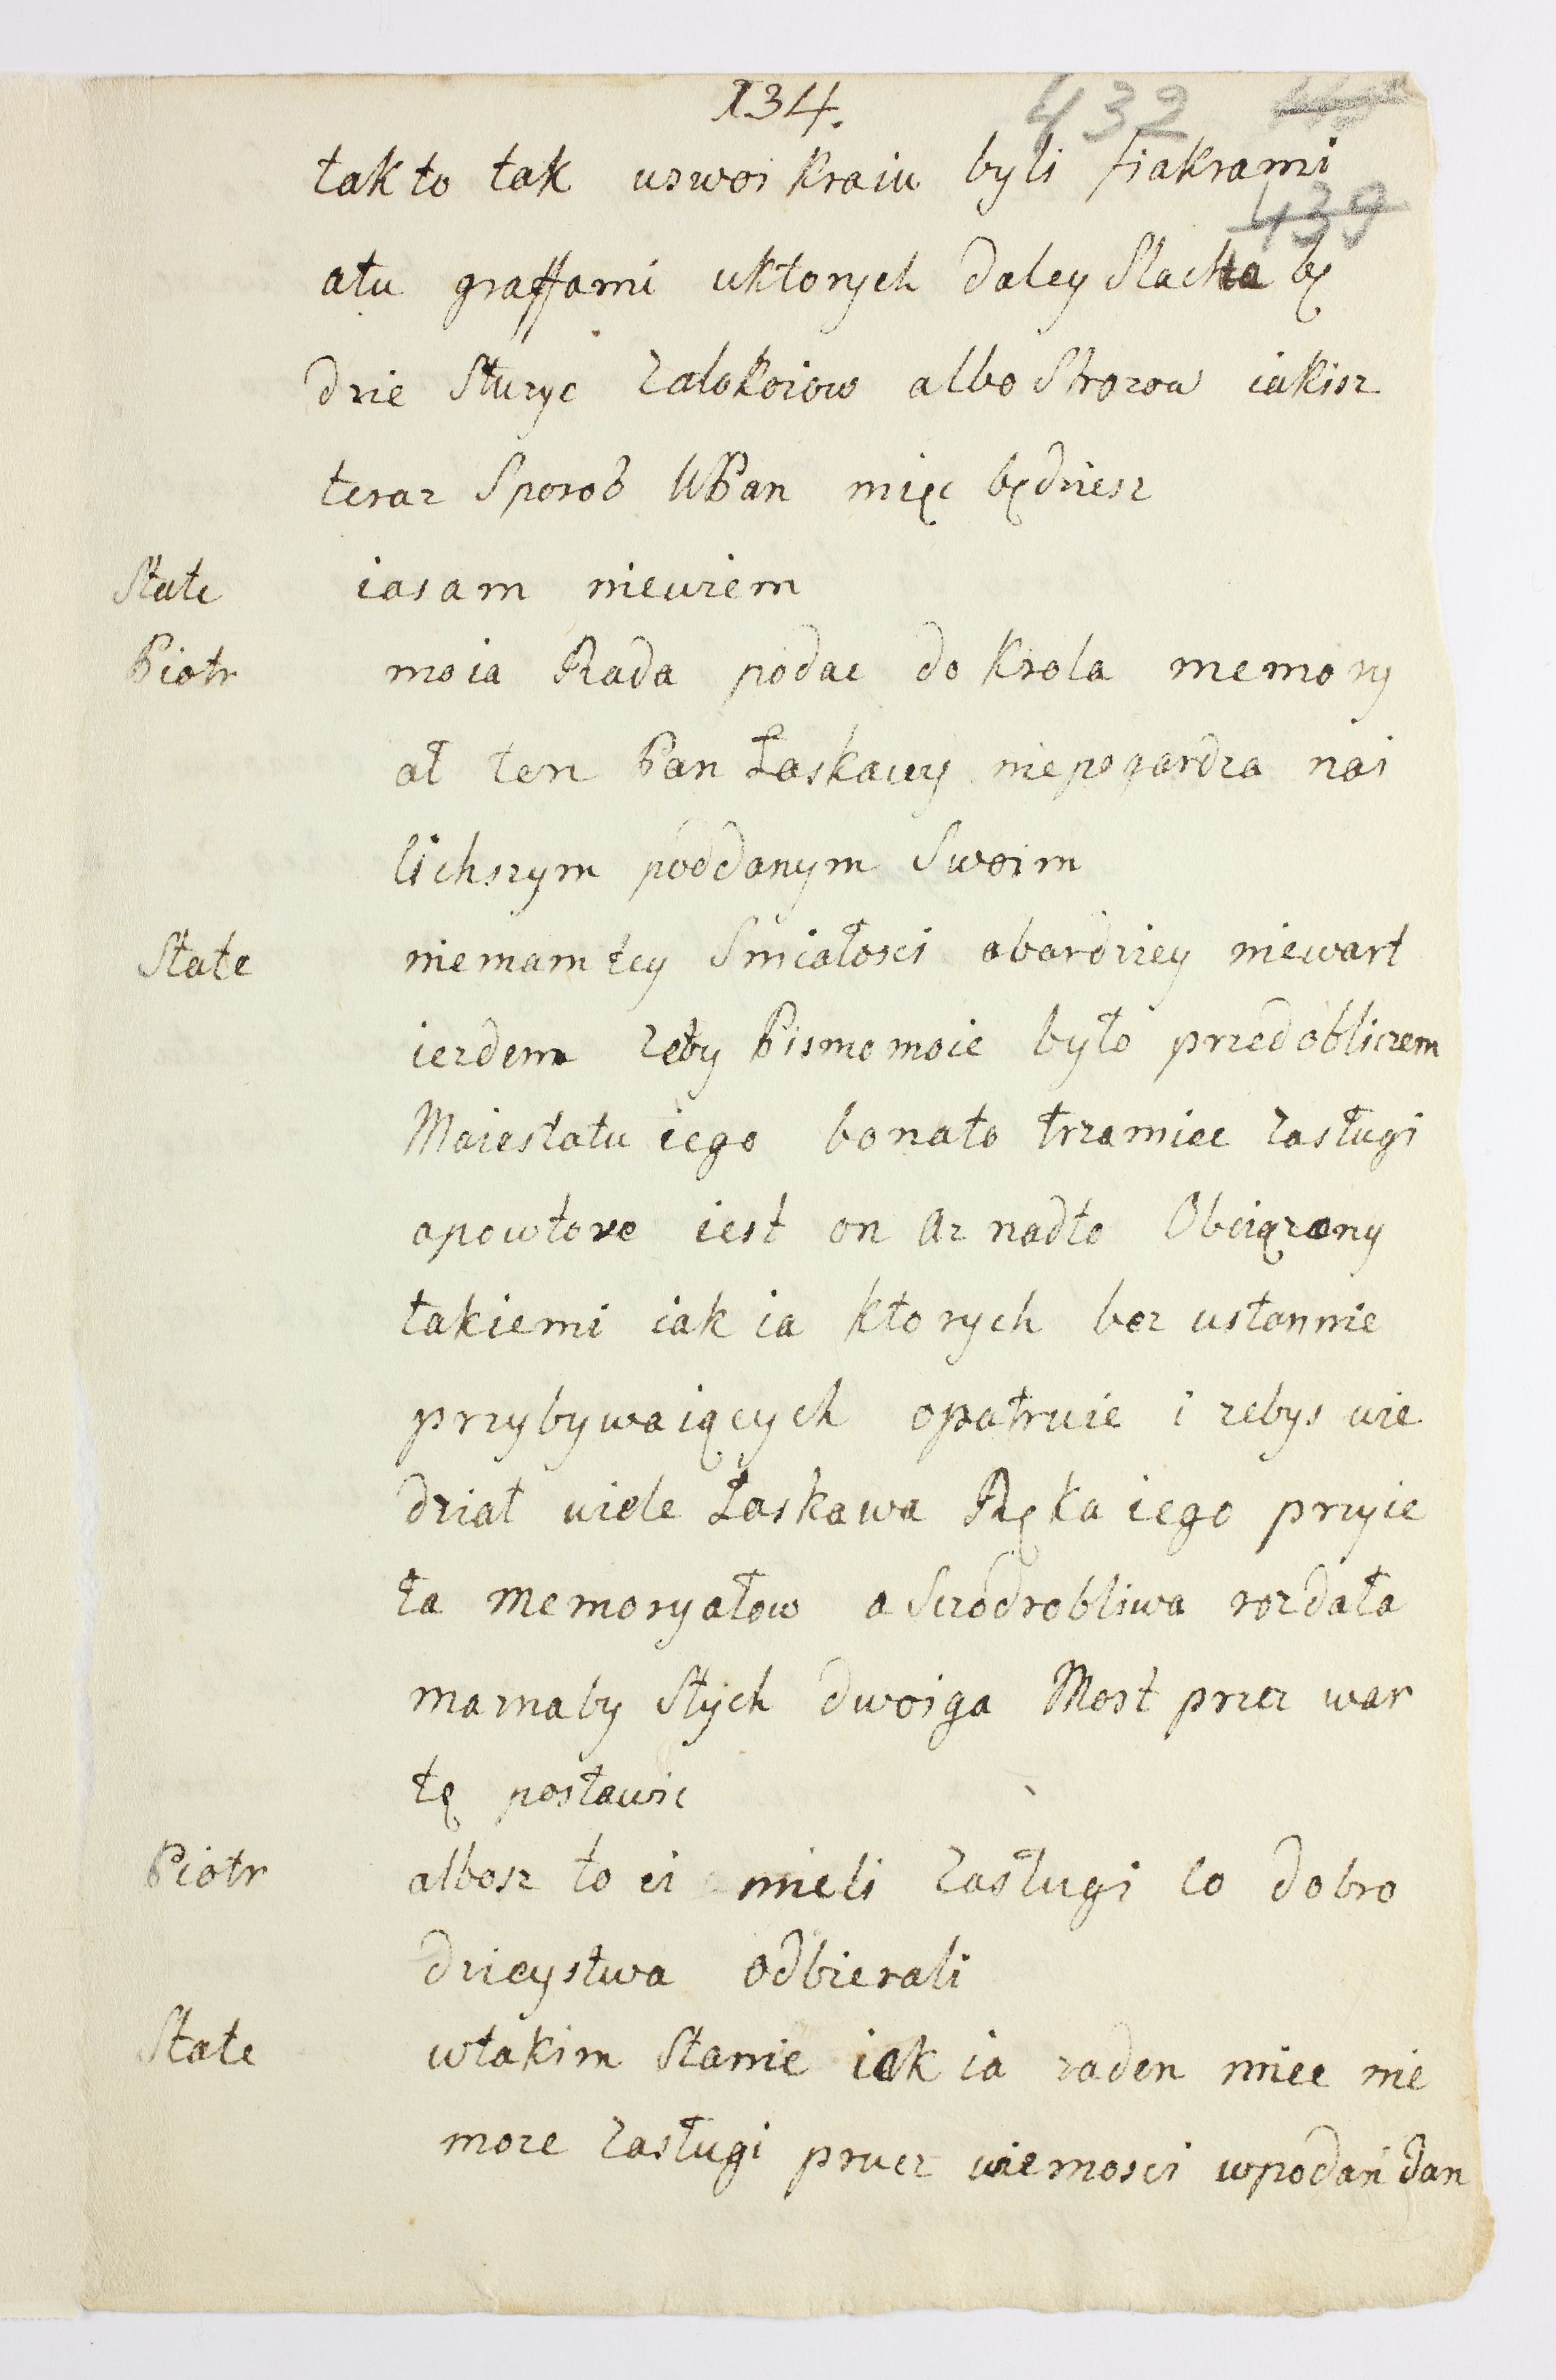 134.
432
439
tak to tak uswoi kraiu byli fiakrami
atu graffami uktorych daley Slachta bę
dzie słuzyc zalokoiow albo Strozow iakisz
teraz Sposob WPan mięc będziesz
State iasam niewiem
Piotr moia Rada podac do krola memory
ał ten Pan Łaskawy niepogardza nai
lichszym poddanym Swoim
State niemam tey Smiałosci abardziey niewart
iezdem zeby Pismo moie było przed obliczem
Maiestatu iego bonato trzamiec zasługi
apowtore iest on az nadto Obciązony
takiemi iak ia ktorych bez ustannie
przybywaiących opatruie i zebys wie
dział wiele Łaskawa Ręka iego przyie
ła memoryałow a Sczodrobliwa rozdała
mamaby Stych dwoiga Most przez war
tę postawic
Piotr albosz to ci mieli zasługi co dobro
dzieystwa odbierali
State wtakim Stanie iak ia zaden miec nie
moze zasługi prucz wiernosci wpodań dan